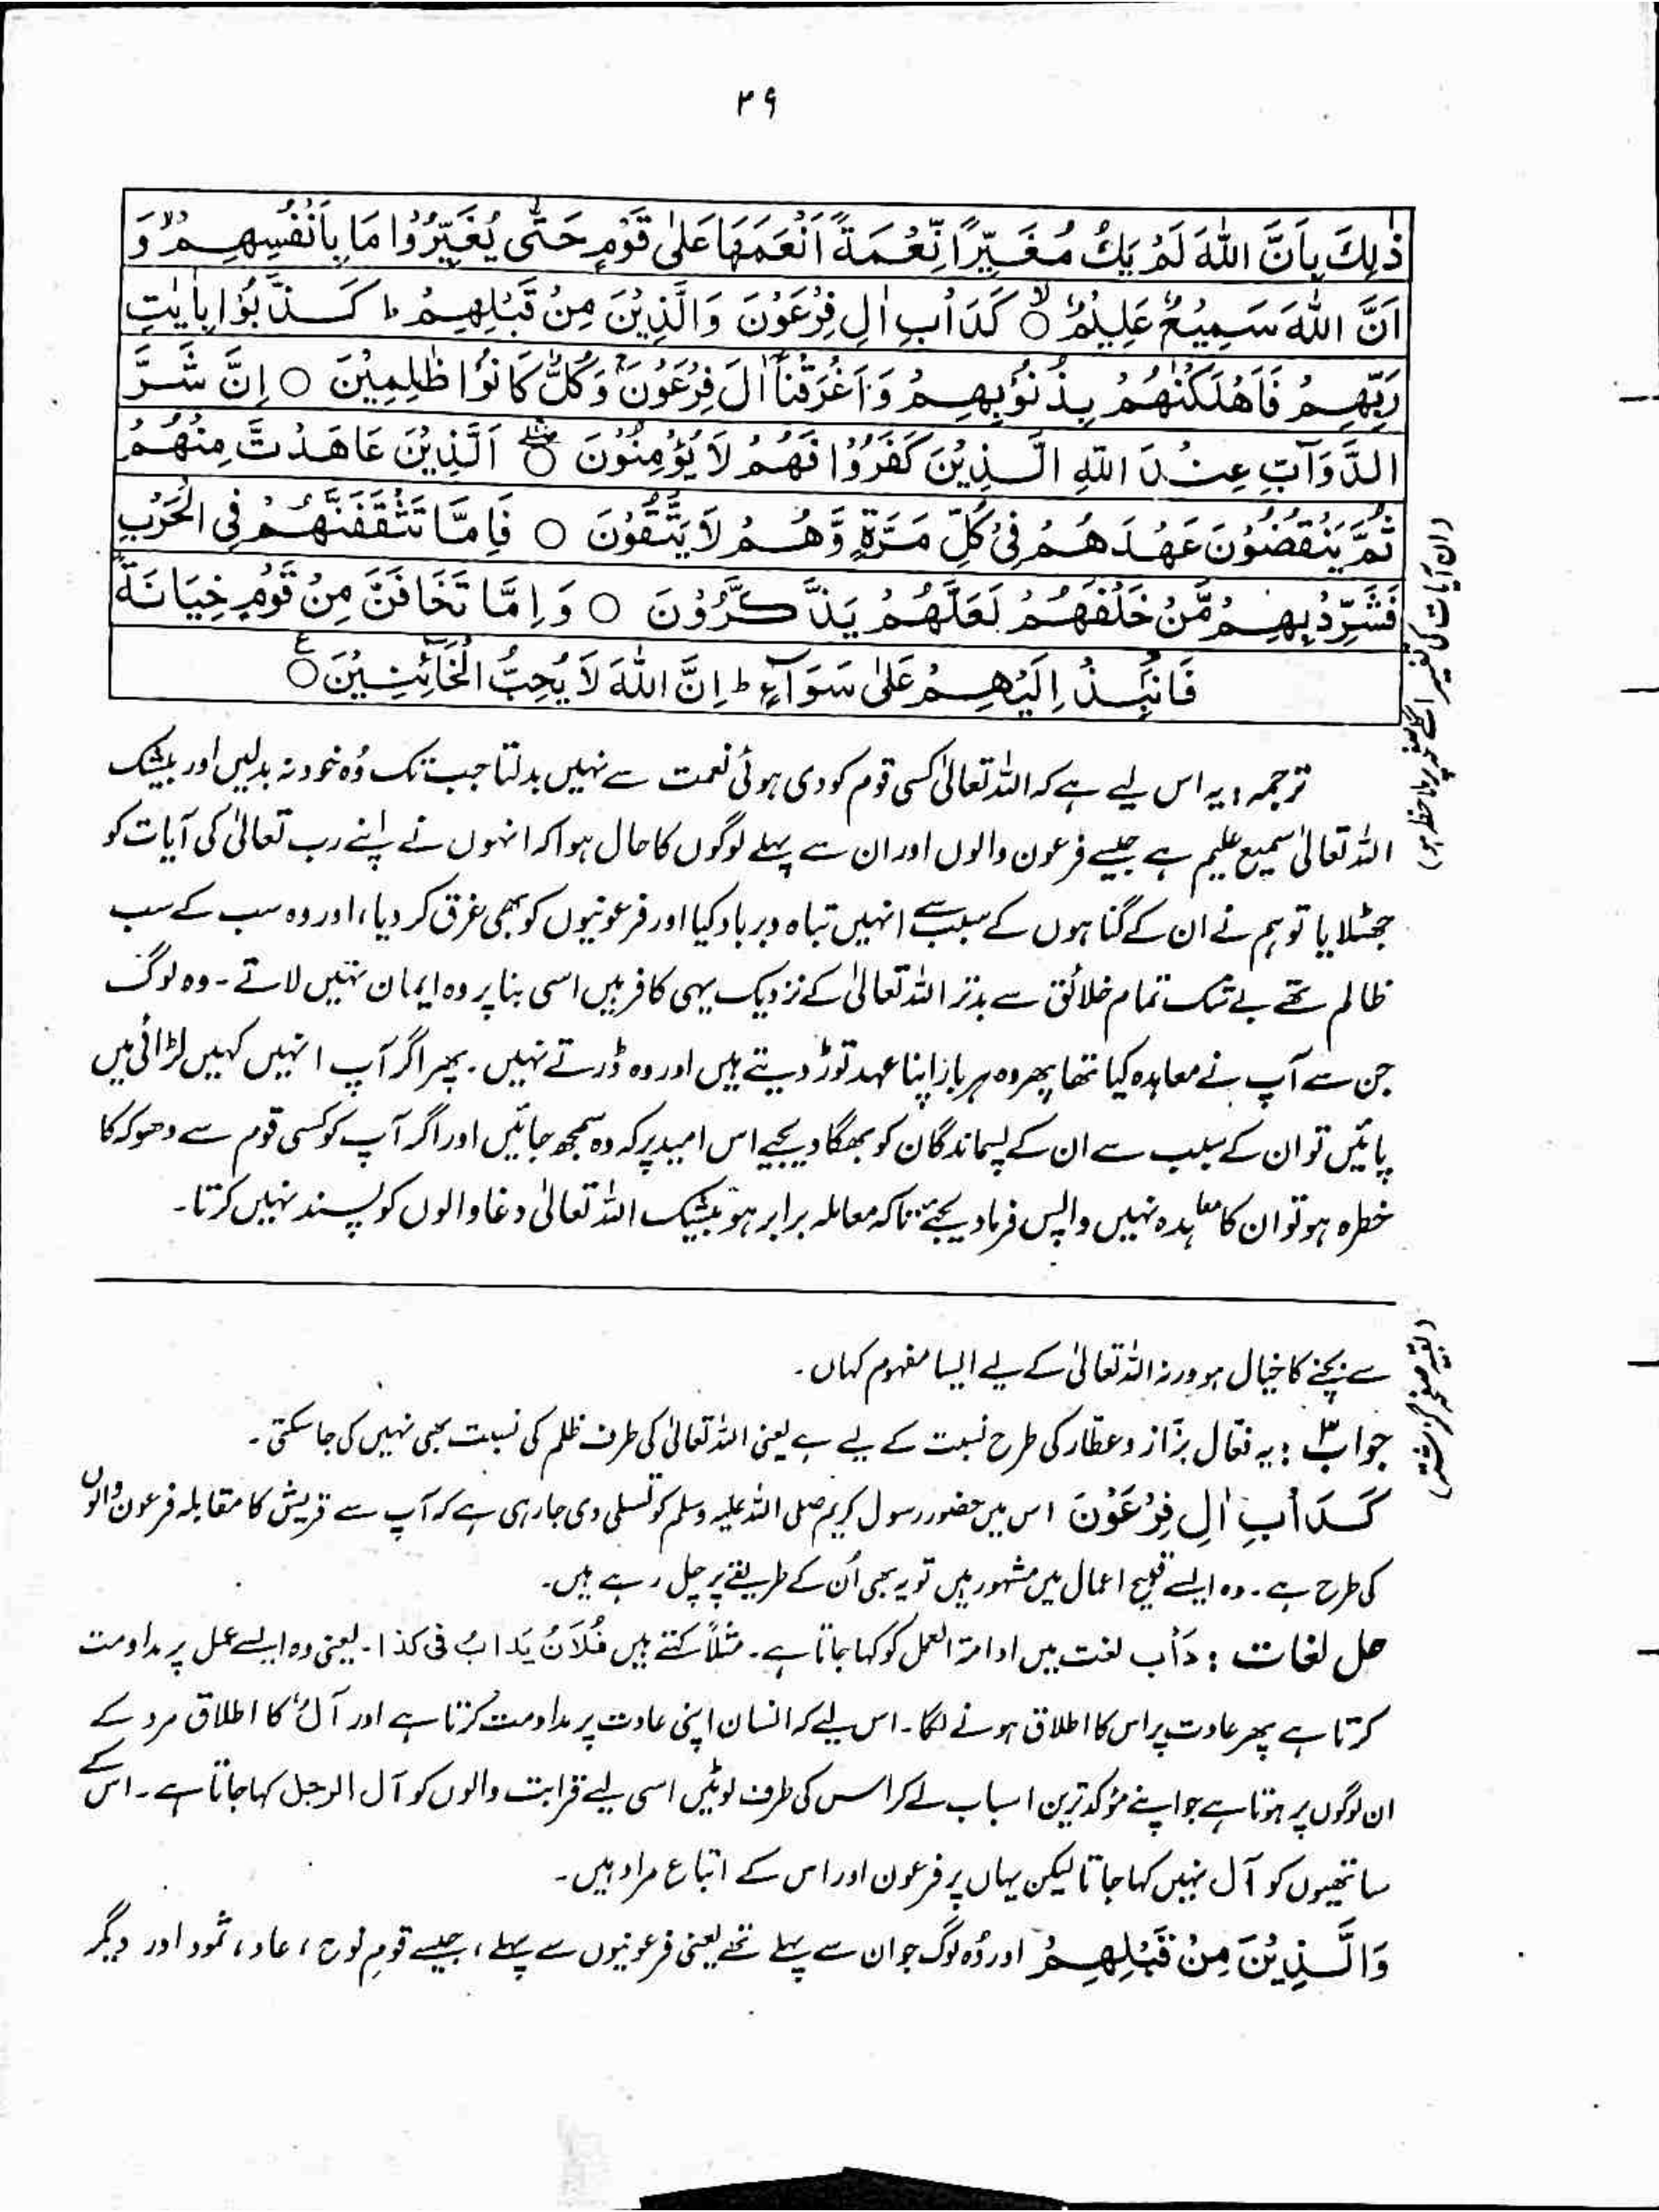 ۳۹
ذٰلِكَ بِاَنَّ اللّٰهَ لَمْ يَكُ مُغَيِّرًا نِّعْمَةً اَنْعَمَهَا عَلٰى قَوْمٍ حَتّٰى يُغَيِّرُوْا مَا بِاَنْفُسِهِمْ ۙ وَ
اَنَّ اللّٰهَ سَمِيْعٌ عَلِيْمٌ ۙ○ كَدَاْبِ اٰلِ فِرْعَوْنَ وَالَّذِيْنَ مِنْ قَبْلِهِمْ ط كَذَّبُوْا بِاٰيٰتِ
رَبِّهِمْ فَاَهْلَكْنٰهُمْ بِذُنُوْبِهِمْ وَاَغْرَقْنَآ اٰلَ فِرْعَوْنَ ۚ وَكُلٌّ كَانُوْا ظٰلِمِيْنَ ○ اِنَّ شَرَّ
الدَّوَآبِّ عِنْدَ اللّٰهِ الَّذِيْنَ كَفَرُوْا فَهُمْ لَا يُؤْمِنُوْنَ ○ اَلَّذِيْنَ عَاهَدْتَّ مِنْهُمْ
ثُمَّ يَنْقُضُوْنَ عَهْدَهُمْ فِىْ كُلِّ مَرَّةٍ وَّهُمْ لَا يَتَّقُوْنَ ○ فَاِمَّا تَثْقَفَنَّهُمْ فِى الْحَرْبِ
فَشَرِّدْ بِهِمْ مَّنْ خَلْفَهُمْ لَعَلَّهُمْ يَذَّكَّرُوْنَ ○ وَاِمَّا تَخَافَنَّ مِنْ قَوْمٍ خِيَانَةً
فَانْۢبِذْ اِلَيْهِمْ عَلٰى سَوَآءٍ ط اِنَّ اللّٰهَ لَا يُحِبُّ الْخَآئِنِيْنَ ○ ع
ترجمہ : یہ اس لیے ہے کہ اللہ تعالیٰ کسی قوم کو دی ہوئی نعمت سے نہیں بدلتا جب تک وُہ خود نہ بدلیں اور بیشک
اللہ تعالیٰ سمیع علیم ہے جیسے فرعون والوں اور ان سے پہلے لوگوں کا حال ہوا کہ انہوں نے اپنے رب تعالیٰ کی آیات کو
جھٹلایا تو ہم نے ان کے گناہوں کے سبب سے انہیں تباہ و برباد کیا اور فرعونیوں کو بھی غرق کر دیا ، اور وہ سب کے سب
ظالم تھے بے شک تمام خلائق سے بدتر اللہ تعالیٰ کے نزدیک یہی کافر ہیں اسی بنا پر وہ ایمان نہیں لاتے ۔ وہ لوگ
جن سے آپ نے معاہدہ کیا تھا پھر وہ ہر بار اپنا عہد توڑ دیتے ہیں اور وہ ڈرتے نہیں ۔ پھر اگر آپ انہیں کہیں لڑائی میں
پائیں تو ان کے سبب سے ان کے پسماندگان کو بھگا دیجیے اس امید پر کہ وہ سمجھ جائیں اور اگر آپ کو کسی قوم سے دھوکہ کا
خطرہ ہو تو ان کا معاہدہ نہیں واپس فرما دیجئے تاکہ معاملہ برابر ہو بیشک اللہ تعالیٰ دغا والوں کو پسند نہیں کرتا ۔
(ان آیات کی تفسیر
(بقیہ صفحہ گزشتہ)
سے بچنے کا خیال ہو ورنہ اللہ تعالیٰ کے لیے ایسا مفہوم کہاں ۔
جواب : یہ نعال بزّاز و عطّار کی طرح نسبت کے لیے ہے یعنی اللہ تعالیٰ کی طرف ظلم کی نسبت بھی نہیں کی جا سکتی ۔
كَدَاْبِ اٰلِ فِرْعَوْنَ اس میں حضور رسول کریم صلی اللہ علیہ وسلم کو تسلی دی جا رہی ہے کہ آپ سے قریش کا مقابلہ فرعون والوں
کی طرح ہے ۔ وہ ایسے قبیح اعمال میں مشہور ہیں تو یہ بھی اُن کے طریقے پر چل رہے ہیں ۔
حل لغات : دَأب لغت میں ادامۃ العمل کو کہا جاتا ہے ۔ مثلاً کہتے ہیں فُلَانٌ يَدابُ فی کذا ۔ یعنی وہ ایسے عمل پر مداومت
کرتا ہے پھر عادت پر اس کا اطلاق ہونے لگا ۔ اس لیے کہ انسان اپنی عادت پر مداومت کرتا ہے اور آلُ کا اطلاق مرد کے
ان لوگوں پر ہوتا ہے جو اپنے مؤکد ترین اسباب لے کر اس کی طرف لوٹیں اسی لیے قرابت والوں کو آل الرجل کہا جاتا ہے ۔ اس کے
ساتھیوں کو آل نہیں کہا جاتا لیکن یہاں پر فرعون اور اس کے اتباع مراد ہیں ۔
وَالَّذِيْنَ مِنْ قَبْلِهِمْ اور وُہ لوگ جو ان سے پہلے تھے یعنی فرعونیوں سے پہلے ، جیسے قومِ نوح ، عاد ، ثمود اور دیگر